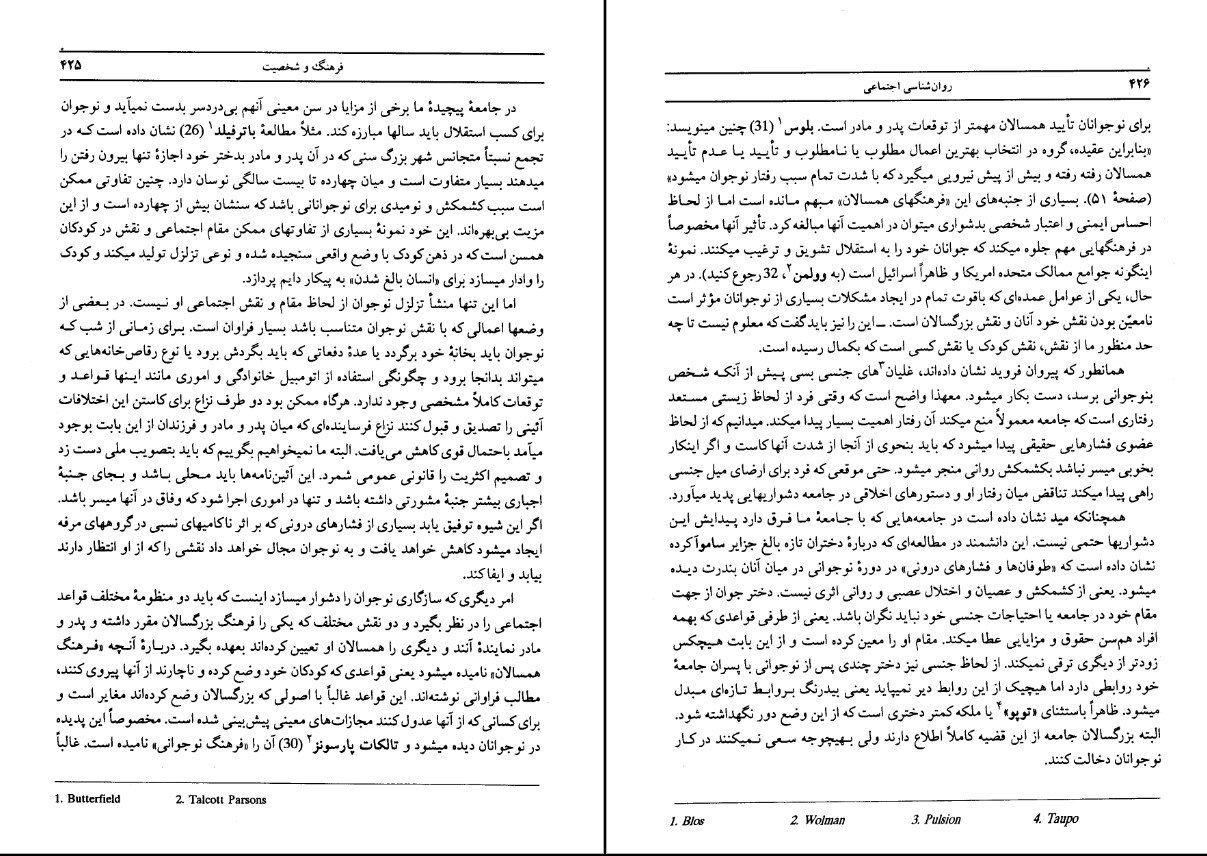 ۴۲۵ فرهنگ و شخصیت
در جامعهٔ پیچیدهٔ ما برخی از مزایا در سن معینی آنهم بی‌دردسر بدست نمیآید و نوجوان
برای کسب استقلال باید سالها مبارزه کند. مثلاً مطالعهٔ باترفیلد۱ (26) نشان داده است که در
تجمع نسبتاً متجانس شهر بزرگ سنی که در آن پدر و مادر بدختر خود اجازهٔ تنها بیرون رفتن را
میدهند بسیار متفاوت است و میان چهارده تا بیست سالگی نوسان دارد. چنین تفاوتی ممکن
است سبب کشمکش و نومیدی برای نوجوانانی باشد که سنشان بیش از چهارده است و از این
مزیت بی‌بهره‌اند. این خود نمونهٔ بسیاری از تفاوتهای ممکن مقام اجتماعی و نقش در کودکان
همسن است که در ذهن کودک با وضع واقعی سنجیده شده و نوعی تزلزل تولید میکند و کودک
را وادار میسازد برای «انسان بالغ شدن» به پیکار دایم پردازد.
اما این تنها منشأ تزلزل نوجوان از لحاظ مقام و نقش اجتماعی او نیست. در بعضی از
وضعها اعمالی که با نقش نوجوان متناسب باشد بسیار فراوان است. برای زمانی از شب که
نوجوان باید بخانهٔ خود برگردد یا عدهٔ دفعاتی که باید بگردش برود یا نوع رقاص‌خانه‌هایی که
میتواند بدانجا برود و چگونگی استفاده از اتومبیل خانوادگی و اموری مانند اینها قواعد و
توقعات کاملاً مشخصی وجود ندارد. هرگاه ممکن بود دو طرف نزاع برای کاستن این اختلافات
آئینی را تصدیق و قبول کنند نزاع فرساینده‌ای که میان پدر و مادر و فرزندان از این بابت بوجود
میآمد باحتمال قوی کاهش می‌یافت. البته ما نمیخواهیم بگوییم که باید بتصویب ملی دست زد
و تصمیم اکثریت را قانونی عمومی شمرد. این آئین‌نامه‌ها باید محلی باشد و بجای جنبهٔ
اجباری بیشتر جنبهٔ مشورتی داشته باشد و تنها در اموری اجرا شود که وفاق در آنها میسر باشد.
اگر این شیوه توفیق یابد بسیاری از فشارهای درونی که بر اثر ناکامیهای نسبی در گروههای مرفه
ایجاد میشود کاهش خواهد یافت و به نوجوان مجال خواهد داد نقشی را که از او انتظار دارند
بیابد و ایفا کند.
امر دیگری که سازگاری نوجوان را دشوار میسازد اینست که باید دو منظومهٔ مختلف قواعد
اجتماعی را در نظر بگیرد و دو نقش مختلف که یکی را فرهنگ بزرگسالان مقرر داشته و پدر و
مادر نمایندهٔ آنند و دیگری را همسالان او تعیین کرده‌اند بعهده بگیرد. دربارهٔ آنچه «فرهنگ
همسالان» نامیده میشود یعنی قواعدی که کودکان خود وضع کرده و ناچارند از آنها پیروی کنند،
مطالب فراوانی نوشته‌اند. این قواعد غالباً با اصولی که بزرگسالان وضع کرده‌اند مغایر است و
برای کسانی که از آنها عدول کنند مجازات‌های معینی پیش‌بینی شده است. مخصوصاً این پدیده
در نوجوانان دیده میشود و تالکات پارسونز۲ (30) آن را «فرهنگ نوجوانی» نامیده است. غالباً
1. Butterfield 2. Talcott Parsons
روان‌شناسی اجتماعی ۴۲۶
برای نوجوانان تأیید همسالان مهمتر از توقعات پدر و مادر است. بلوس۱ (31) چنین مینویسد:
«بنابراین عقیده، گروه در انتخاب بهترین اعمال مطلوب یا نامطلوب و تأیید یا عدم تأیید
همسالان رفته رفته و بیش از پیش نیرویی میگیرد که با شدت تمام سبب رفتار نوجوان میشود»
(صفحهٔ ۵۱). بسیاری از جنبه‌های این «فرهنگهای همسالان» مبهم مانده است اما از لحاظ
احساس ایمنی و اعتبار شخصی بدشواری میتوان در اهمیت آنها مبالغه کرد. تأثیر آنها مخصوصاً
در فرهنگهایی مهم جلوه میکند که جوانان خود را به استقلال تشویق و ترغیب میکنند. نمونهٔ
اینگونه جوامع ممالک متحده امریکا و ظاهراً اسرائیل است (به وولمن۲، 32 رجوع کنید). در هر
حال، یکی از عوامل عمده‌ای که باقوت تمام در ایجاد مشکلات بسیاری از نوجوانان مؤثر است
نامعیّن بودن نقش خود آنان و نقش بزرگسالان است. ــ این را نیز باید گفت که معلوم نیست تا چه
حد منظور ما از نقش، نقش کودک یا نقش کسی است که بکمال رسیده است.
همانطور که پیروان فروید نشان داده‌اند، غلیان۳های جنسی بسی پیش از آنکه شخص
بنوجوانی برسد، دست بکار میشود. معهذا واضح است که وقتی فرد از لحاظ زیستی مستعد
رفتاری است که جامعه معمولاً منع میکند آن رفتار اهمیت بسیار پیدا میکند. میدانیم که از لحاظ
عضوی فشارهایی حقیقی پیدا میشود که باید بنحوی از آنجا از شدت آنها کاست و اگر اینکار
بخوبی میسر نباشد بکشمکش روانی منجر میشود. حتی موقعی که فرد برای ارضای میل جنسی
راهی پیدا میکند تناقض میان رفتار او و دستورهای اخلاقی در جامعه دشواریهایی پدید میآورد.
همچنانکه مید نشان داده است در جامعه‌هایی که با جامعهٔ ما فرق دارد پیدایش این
دشواریها حتمی نیست. این دانشمند در مطالعه‌ای که دربارهٔ دختران تازه بالغ جزایر ساموآ کرده
نشان داده است که «طوفان‌ها و فشارهای درونی» در دورهٔ نوجوانی در میان آنان بندرت دیده
میشود. یعنی از کشمکش و عصیان و اختلال عصبی و روانی اثری نیست. دختر جوان از جهت
مقام خود در جامعه یا احتیاجات جنسی خود نباید نگران باشد. یعنی از طرفی قواعدی که بهمه
افراد هم‌سن حقوق و مزایایی عطا میکند. مقام او را معین کرده است و از این بابت هیچکس
زودتر از دیگری ترقی نمیکند. از لحاظ جنسی نیز دختر چندی پس از نوجوانی با پسران جامعهٔ
خود روابطی دارد اما هیچیک از این روابط دیر نمیپاید یعنی بیدرنگ بروابط تازه‌ای مبدل
میشود. ظاهراً باستثنای «توپو»۴ یا ملکه کمتر دختری است که از این وضع دور نگهداشته شود.
البته بزرگسالان جامعه از این قضیه کاملاً اطلاع دارند ولی بهیچوجه سعی نمیکنند در کار
نوجوانان دخالت کنند.
1. Blos 2. Wolman 3. Pulsion 4. Taupo